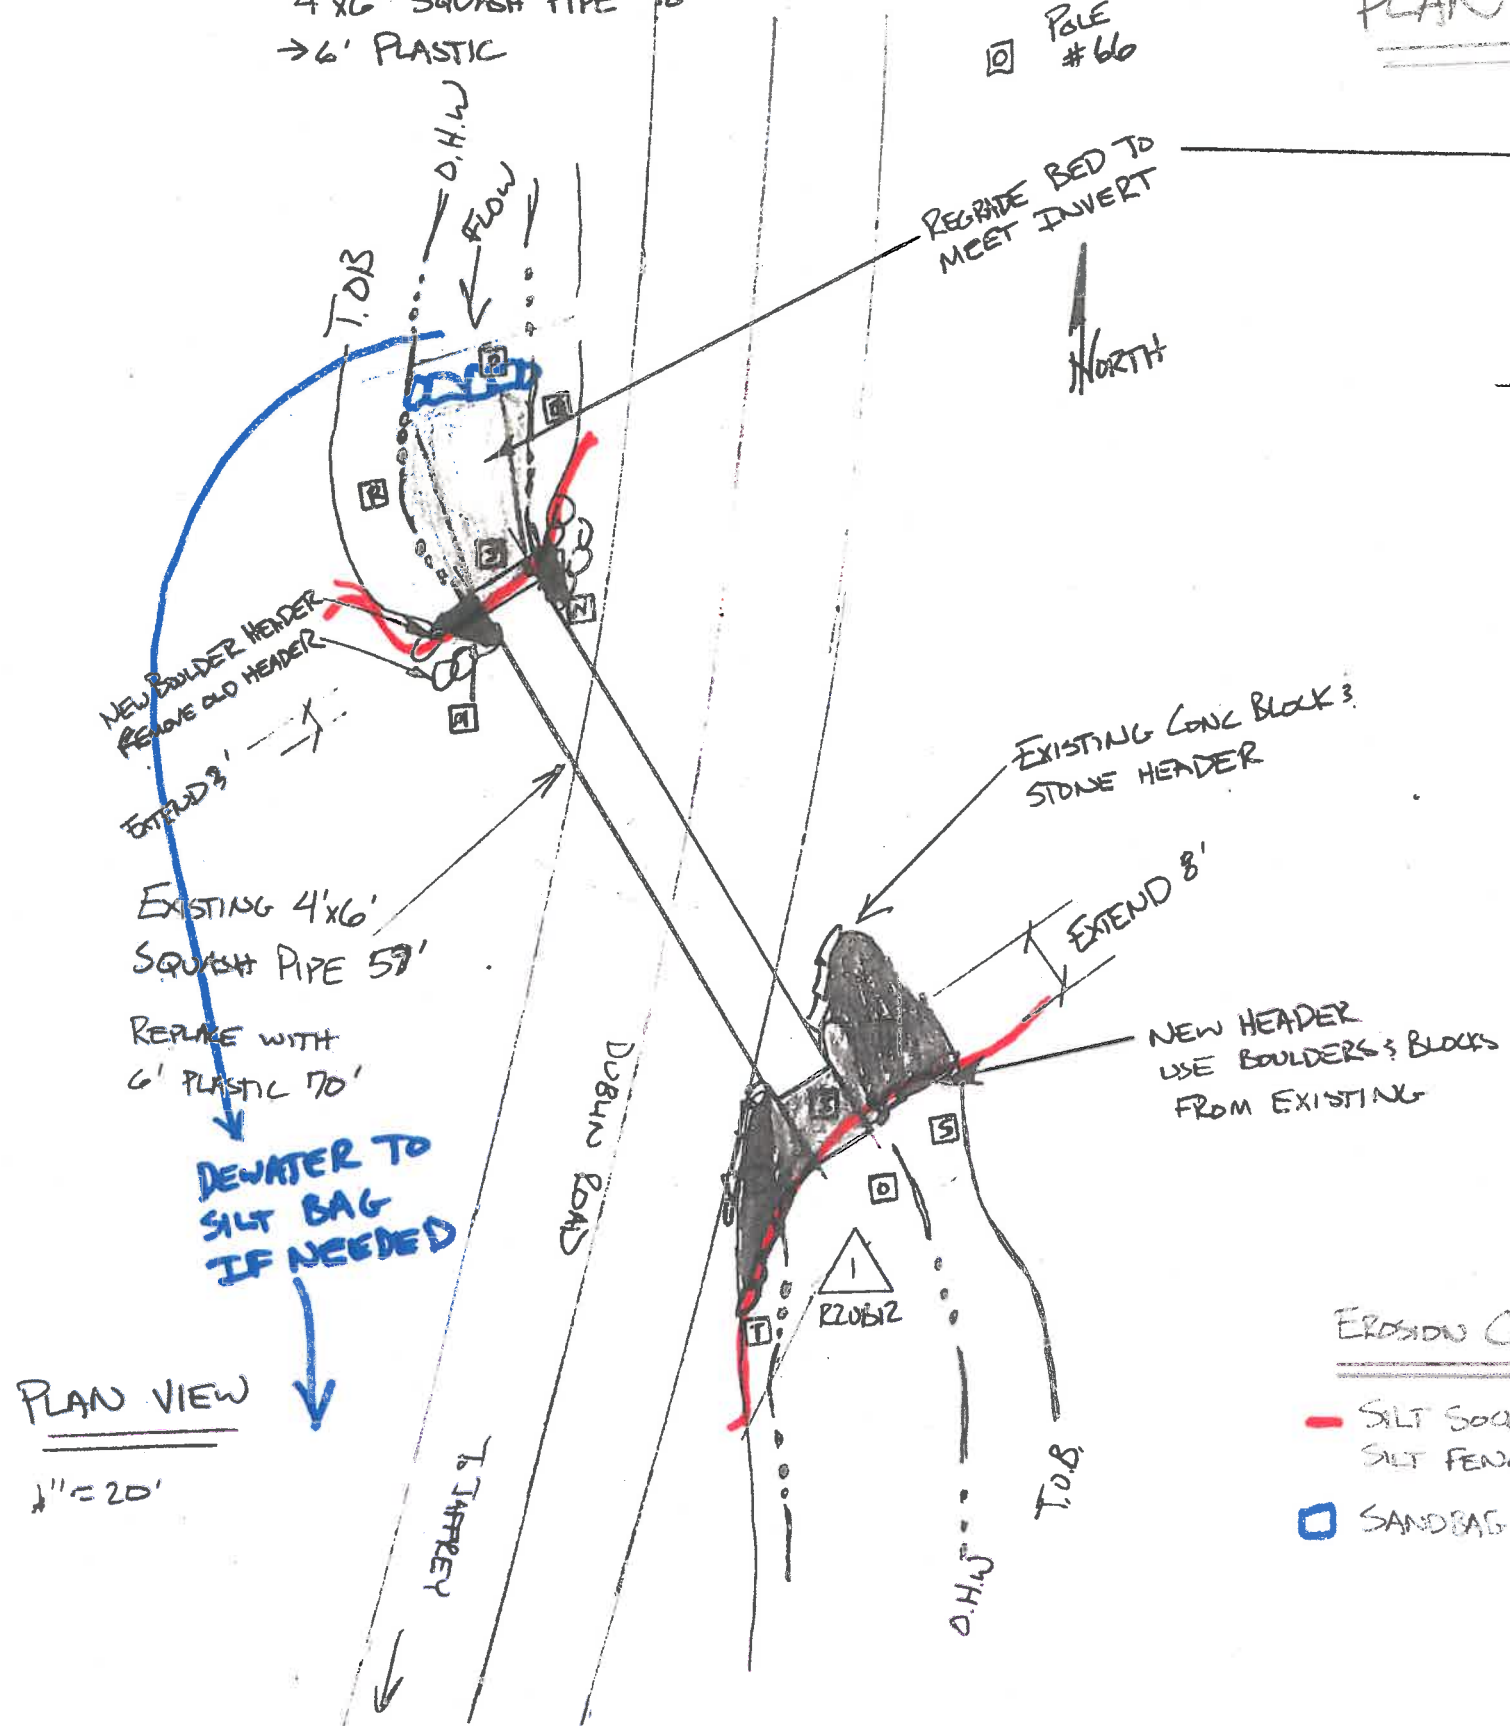 4'x6' SQUASH PIPE
→6' PLASTIC
POLE
#66
PLAN
O.H.W
FLOW
T.O.B
REGRADE BED TO
MEET INVERT
NORTH
NEW BOULDER HEADER
REMOVE OLD HEADER
EXTEND 3'
N
EXISTING CONC BLOCK &
STONE HEADER
EXTEND 8'
EXISTING 4'x6'
SQUASH PIPE 59'
REPLACE WITH
6' PLASTIC 70'
NEW HEADER
USE BOULDERS & BLOCKS
FROM EXISTING
DUBLIN ROAD
S
O
DEWATER TO
SILT BAG
IF NEEDED
1
T
PLAN VIEW
1"=20'
TO JAFFREY
T.O.B.
O.H.W
EROSION C
SILT SOC
SILT FEN
SANDBAG